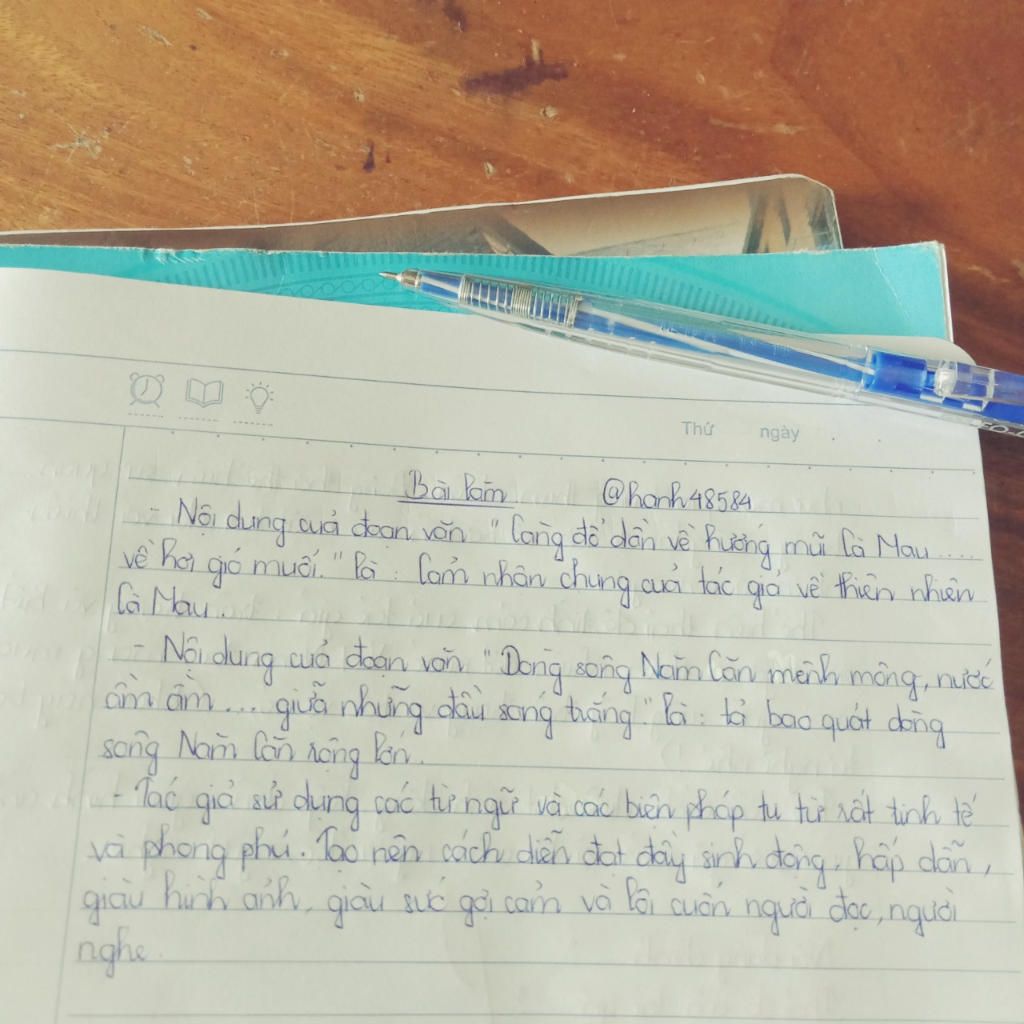 Thứ ngày
Bài làm @hanh48584
- Nội dung của đoạn văn "Càng đổ dần về hướng mũi Cà Mau....
về hơi gió muối." là : Cảm nhận chung của tác giả về thiên nhiên
Cà Mau.
- Nội dung của đoạn văn "Dòng sông Năm Căn mênh mông, nước
ầm ầm... giữa những đầu sóng trắng." là : tả bao quát dòng
sông Năm Căn rộng lớn.
- Tác giả sử dụng các từ ngữ và các biện pháp tu từ rất tinh tế
và phong phú. Tạo nên cách diễn đạt đầy sinh động, hấp dẫn,
giàu hình ảnh, giàu sức gợi cảm và lôi cuốn người đọc, người
nghe.